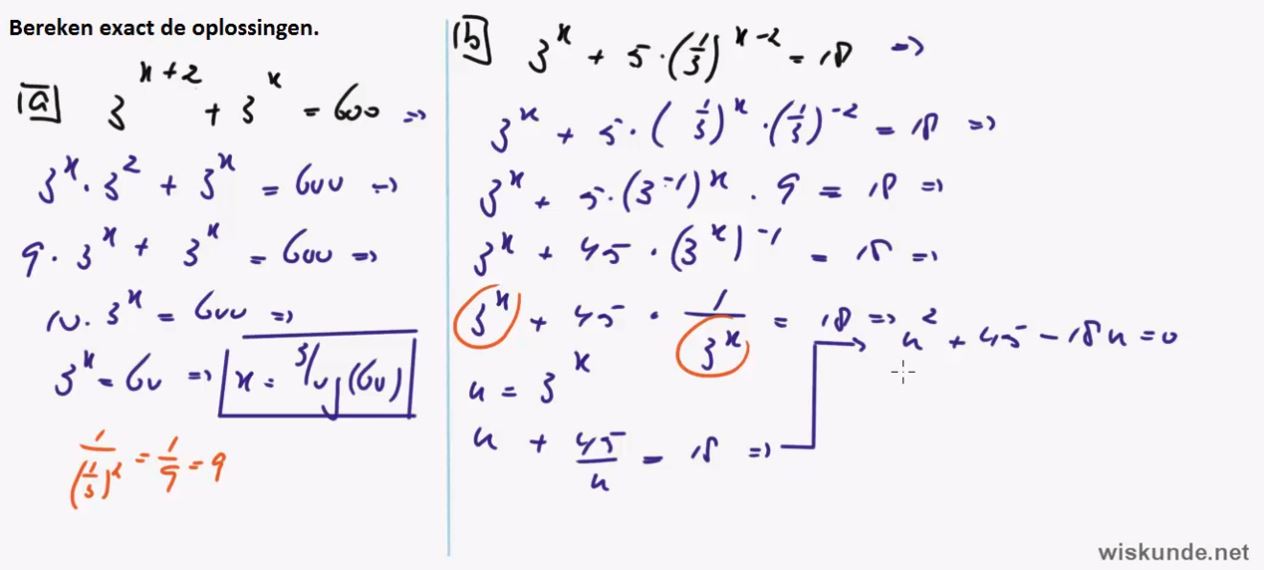 Bereken exact de oplossingen.
a 3^(x+2) + 3^x = 600 =>
3^x · 3^2 + 3^x = 600 =>
9 · 3^x + 3^x = 600 =>
10 · 3^x = 600 =>
3^x = 60 => x = ³log(60)
1/(1/3)^2 = 1/9 = 9
b 3^x + 5 · (1/3)^(x-2) = 18 =>
3^x + 5 · (1/3)^x · (1/3)^-2 = 18 =>
3^x + 5 · (3^-1)^x · 9 = 18 =>
3^x + 45 · (3^x)^-1 = 18 =>
3^x + 45 · 1/3^x = 18 =>
u = 3^x
u + 45/u = 18 =>
u^2 + 45 - 18u = 0
wiskunde.net